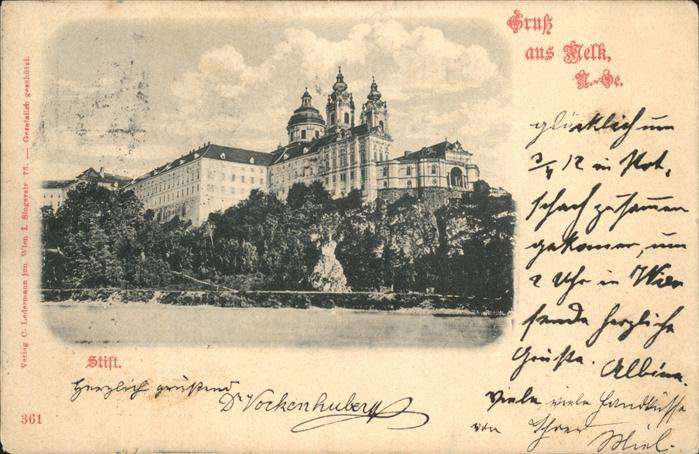 Gruß
aus Melk,
N.-Oe.
glücklich um
3/4 12 in Pot,
schach zusammen
gekomen, um
2 Uhr in Wien
sende herzliche
Grüße. Albine.
Viele, viele Handküsse
von Ihrer
Stift.
Herzlich grüßend
Dr Vockenhuber
361
Verlag C. Ledermann jun. Wien I. Singerstr. — Gesetzlich geschützt.